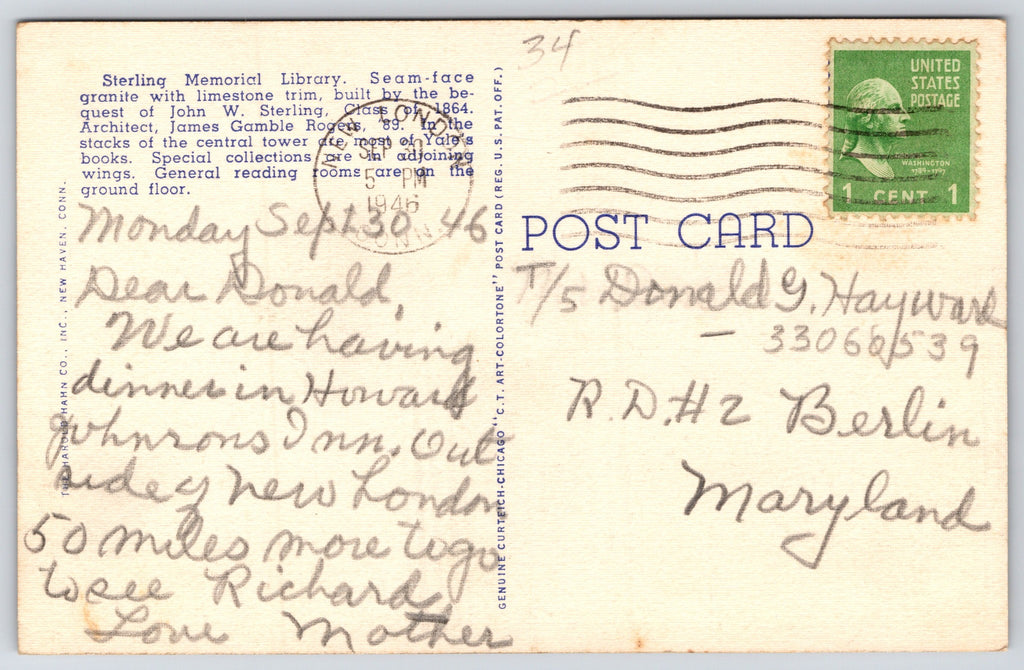 34
Sterling Memorial Library. Seam-face
granite with limestone trim, built by the be-
quest of John W. Sterling, Class of 1864.
Architect, James Gamble Rogers, '89. In the
stacks of the central tower are most of Yale's
books. Special collections are in adjoining
wings. General reading rooms are on the
ground floor.
NEW LONDON
SEP 30
5 PM
1946
CONN.
UNITED
STATES
POSTAGE
WASHINGTON
1789-1797
1 CENT 1
POST CARD
THE HAROLD HAHN CO., INC., NEW HAVEN, CONN.
GENUINE CURTEICH-CHICAGO "C.T. ART-COLORTONE" POST CARD (REG. U.S. PAT. OFF.)
Monday Sept 30 46
Dear Donald,
We are having
dinner in Howard
Johnsons Inn. Out
side of New London
50 miles more to go
to see Richard
Love Mother
T/5 Donald G. Hayward
- 33066539
R.D.#2 Berlin
Maryland